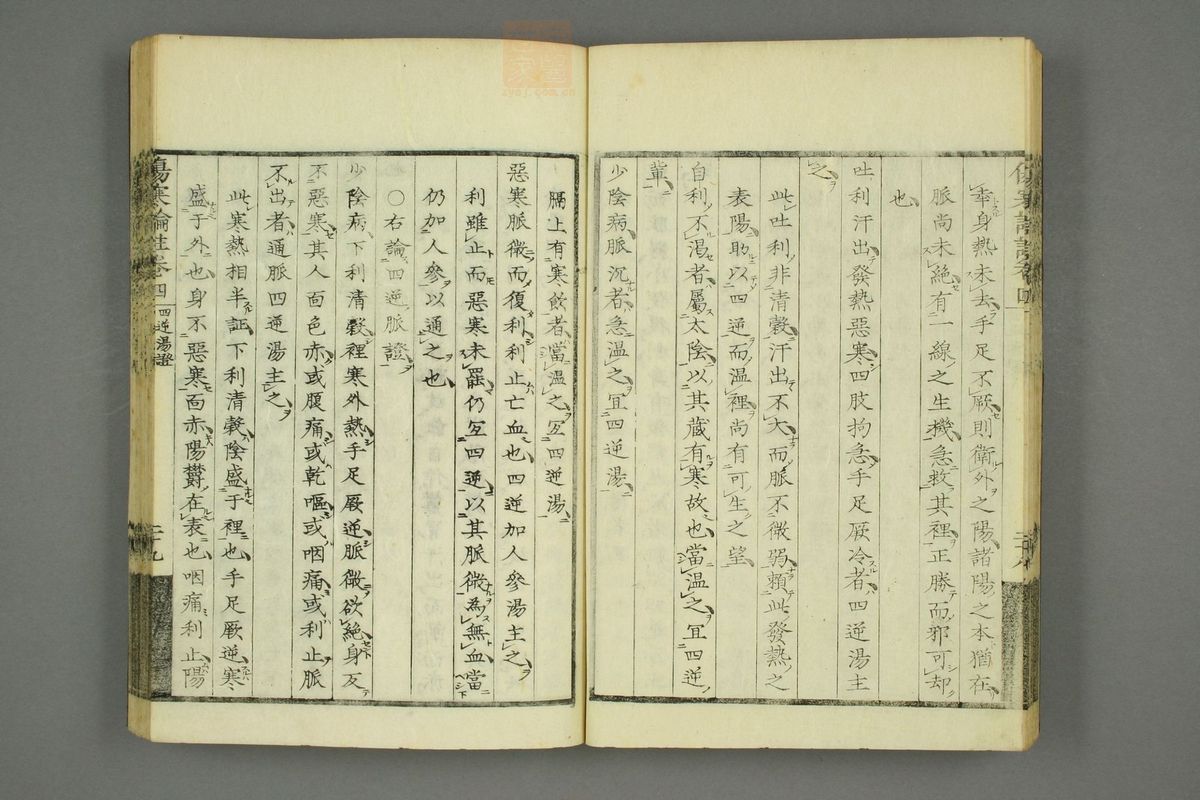 幸身熱未去手足不厥則衛外之陽諸陽之本猶在
脈尚未絶有一線之生機急救其裡正勝而邪可却
也
吐利汗出發熱惡寒四肢拘急手足厥冷者四逆湯主
之
此吐利非清穀汗出不大而脈不微弱賴此發熱之
表陽助以四逆而温裡尚有可生之望
自利不渴者屬太陰以其蔵有寒故也當温之宜四逆
輩
少陰病脈沉者急温之宜四逆湯
膈上有寒飲者當温之宜四逆湯
惡寒脈微而復利利止亡血也四逆加人參湯主之
利雖止而惡寒未罷仍宜四逆以其脈微為無血當
仍加人參以通之也
○右論四逆脈證
少陰病下利清穀裡寒外熱手足厥逆脈微欲絶身反
不惡寒其人面色赤或腹痛或乾嘔或咽痛或利止脈
不出者通脈四逆湯主之
此寒熱相半証下利清穀陰盛于裡也手足厥逆寒
盛于外也身不惡寒面赤陽欝在表也咽痛利止陽
傷寒論註卷四
四逆湯證
二十九